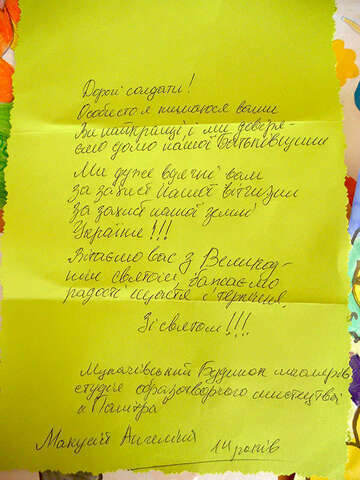 Дорогі солдати!
Особисто я пишаюся вами
Ви найкращі, і ми довіря-
ємо долю нашої Батьківщини
Ми дуже вдячні вам
за захист нашої вітчизни
За захист нашої землі
України!!!
Вітаємо вас з Великод-
нім святом, бажаємо
радості щастя і терпіння.
Зі святом!!!
Мукачівський Будинок школярів
студія образотворчого мистецтва
Палітра
14 років